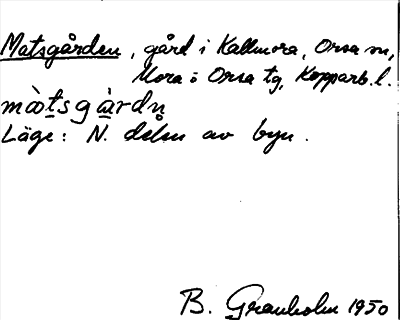 Matsgården, gård i Kallmora, Orsa sn,
Mora o Orsa tg, Kopparb. l.
mà̀tsgà̀rdn̥
Läge: N. delen av byn.
B. Granholm 1950